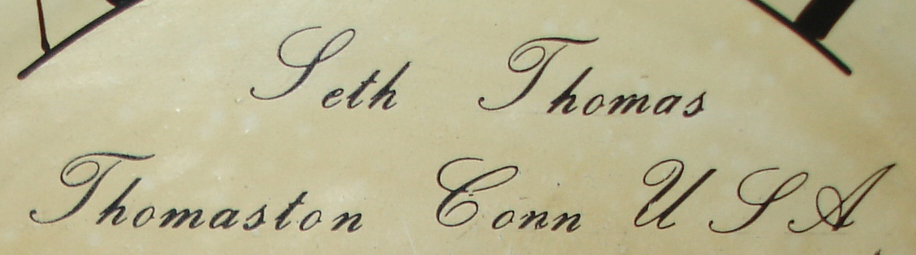 Seth Thomas
Thomaston Conn U S A